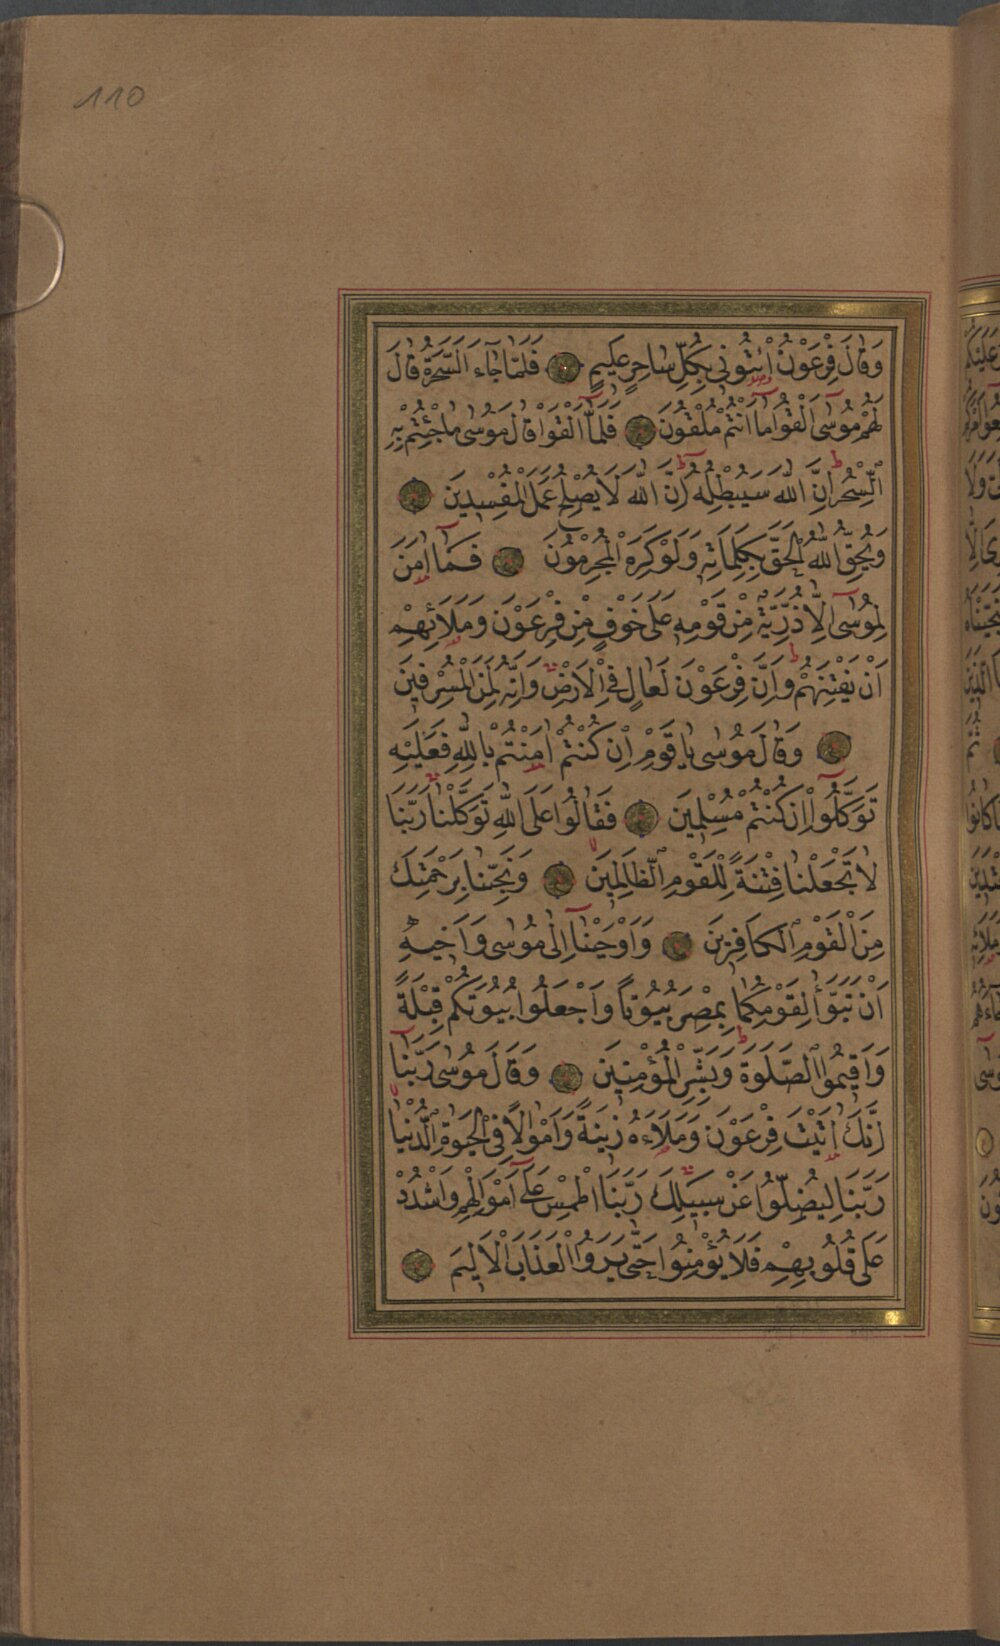 110
وَقَالَ فِرْعَوْنُ ائْتُونِي بِكُلِّ سَاحِرٍ عَلِيمٍ فَلَمَّا جَاءَ السَّحَرَةُ قَالَ
لَهُمْ مُوسَى أَلْقُوا مَا أَنْتُمْ مُلْقُونَ فَلَمَّا أَلْقَوْا قَالَ مُوسَى مَا جِئْتُمْ بِهِ
السِّحْرُ إِنَّ اللَّهَ سَيُبْطِلُهُ إِنَّ اللَّهَ لَا يُصْلِحُ عَمَلَ الْمُفْسِدِينَ
وَيُحِقُّ اللَّهُ الْحَقَّ بِكَلِمَاتِهِ وَلَوْ كَرِهَ الْمُجْرِمُونَ فَمَا اٰمَنَ
لِمُوسَى إِلَّا ذُرِّيَّةٌ مِنْ قَوْمِهِ عَلَى خَوْفٍ مِنْ فِرْعَوْنَ وَمَلَائِهِمْ
أَنْ يَفْتِنَهُمْ وَإِنَّ فِرْعَوْنَ لَعَالٍ فِي الْأَرْضِ وَإِنَّهُ لَمِنَ الْمُسْرِفِينَ
وَقَالَ مُوسَى يَا قَوْمِ إِنْ كُنْتُمْ اٰمَنْتُمْ بِاللَّهِ فَعَلَيْهِ
تَوَكَّلُوا إِنْ كُنْتُمْ مُسْلِمِينَ فَقَالُوا عَلَى اللَّهِ تَوَكَّلْنَا رَبَّنَا
لَا تَجْعَلْنَا فِتْنَةً لِلْقَوْمِ الظَّالِمِينَ وَنَجِّنَا بِرَحْمَتِكَ
مِنَ الْقَوْمِ الْكَافِرِينَ وَأَوْحَيْنَا إِلَى مُوسَى وَأَخِيهِ
أَنْ تَبَوَّأَ لِقَوْمِكُمَا بِمِصْرَ بُيُوتًا وَاجْعَلُوا بُيُوتَكُمْ قِبْلَةً
وَأَقِيمُوا الصَّلَوةَ وَبَشِّرِ الْمُؤْمِنِينَ وَقَالَ مُوسَى رَبَّنَا
إِنَّكَ اٰتَيْتَ فِرْعَوْنَ وَمَلَاءَهُ زِينَةً وَأَمْوَالًا فِي الْحَيَوةِ الدُّنْيَا
رَبَّنَا لِيُضِلُّوا عَنْ سَبِيلِكَ رَبَّنَا اطْمِسْ عَلَى أَمْوَالِهِمْ وَاشْدُدْ
عَلَى قُلُوبِهِمْ فَلَا يُؤْمِنُوا حَتَّى يَرَوُا الْعَذَابَ الْأَلِيمَ